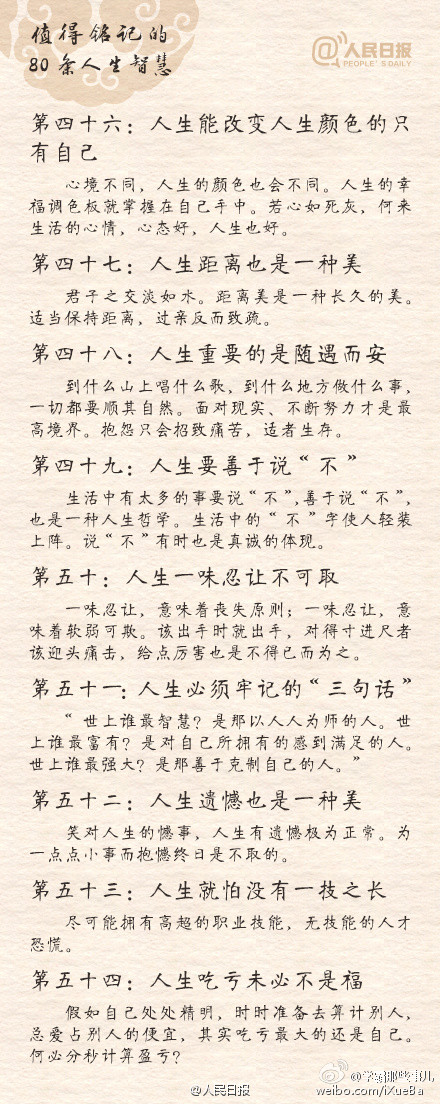 值得铭记的
80条人生智慧
@人民日报
PEOPLE'S DAILY
第四十六：人生能改变人生颜色的只
有自己
心境不同，人生的颜色也会不同。人生的幸
福调色板就掌握在自己手中。若心如死灰，何来
生活的心情，心态好，人生也好。
第四十七：人生距离也是一种美
君子之交淡如水。距离美是一种长久的美。
适当保持距离，过亲反而致疏。
第四十八：人生重要的是随遇而安
到什么山上唱什么歌，到什么地方做什么事，
一切都要顺其自然。面对现实、不断努力才是最
高境界。抱怨只会招致痛苦，适者生存。
第四十九：人生要善于说“不”
生活中有太多的事要说“不”，善于说“不”，
也是一种人生哲学。生活中的“不”字使人轻装
上阵。说“不”有时也是真诚的体现。
第五十：人生一味忍让不可取
一味忍让，意味着丧失原则；一味忍让，意
味着软弱可欺。该出手时就出手，对得寸进尺者
该迎头痛击，给点厉害也是不得已而为之。
第五十一：人生必须牢记的“三句话”
“世上谁最智慧？是那以人人为师的人。世
上谁最富有？是对自己所拥有的感到满足的人。
世上谁最强大？是那善于克制自己的人。”
第五十二：人生遗憾也是一种美
笑对人生的憾事，人生有遗憾极为正常。为
一点点小事而抱憾终日是不取的。
第五十三：人生就怕没有一技之长
尽可能拥有高超的职业技能，无技能的人才
恐慌。
第五十四：人生吃亏未必不是福
假如自己处处精明，时时准备去算计别人，
总爱占别人的便宜，其实吃亏最大的还是自己。
何必分秒计算盈亏？
@人民日报
@学霸那些事儿
weibo.com/iXueBa